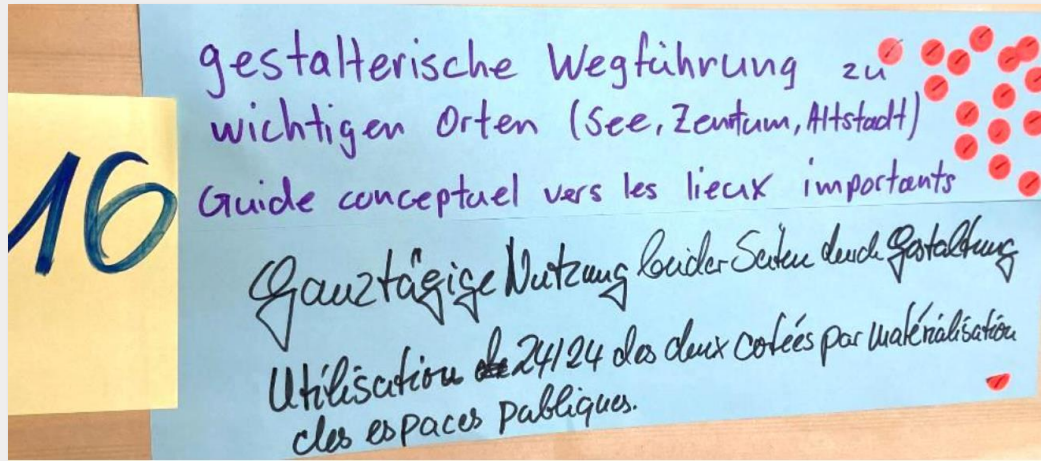 16
gestalterische Wegführung zu
wichtigen Orten (See, Zentum, Altstadt)
Guide conceptuel vers les lieux importants
Ganztägige Nutzung beider Seiten durch Gestaltung
Utilisation 24/24 des deux cotéés par matérialisation
des espaces publiques.